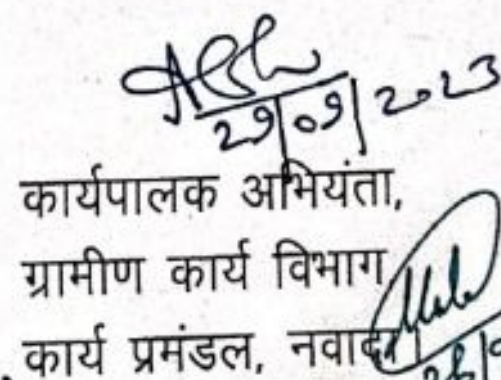 29/09/2023
कार्यपालक अभियंता,
ग्रामीण कार्य विभाग
कार्य प्रमंडल, नवादा।